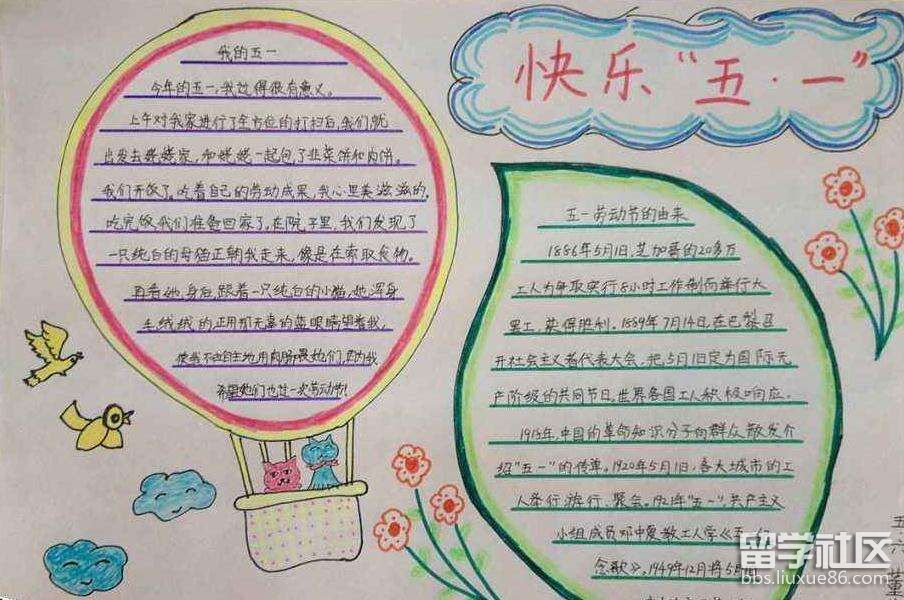 快乐“五·一”
我的五一
今年的五一,我过得很有意义。
上午对我家进行了全方位的打扫后,我们就
出发去姥姥家,和姥姥一起包了韭菜饼和肉饼。
我们开饭了,吃着自己的劳动成果,我心里美滋滋的。
吃完饭我们准备回家了,在院子里,我们发现了
一只纯白的母猫正朝我走来,像是在索取食物。
再看她身后,跟着一只纯白的小猫,她浑身
毛绒绒的,正用那无辜的蓝眼睛望着我,
使我不由自主地用肉肠喂她们,因为我
希望她们也过一次劳动节!
五一劳动节的由来
1886年5月1日,芝加哥的20多万
工人为争取实行8小时工作制而举行大
罢工,获得胜利。1889年7月14日,在巴黎召
开社会主义者代表大会,把5月1日定为国际无
产阶级的共同节日,世界各国工人积极响应。
1918年,中国的革命知识分子向群众散发介
绍“五一”的传单。1920年5月1日,各大城市的工
人举行游行、聚会。1921年“五一”共产主义
小组成员邓中夏教工人学《五一纪
念歌》。1949年12月将5月1
五六
董
留学社区
bbs.liuxue86.com